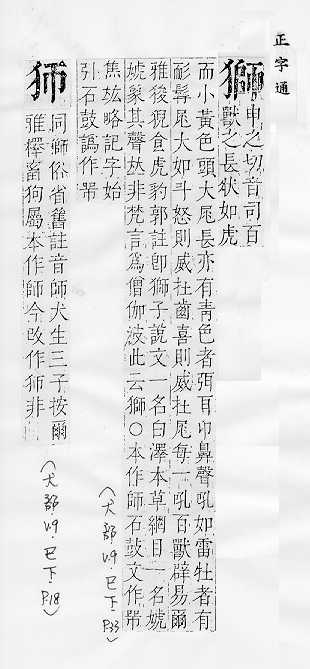 正字通
獅申之切音司百
獸之長狀如虎
而小黃色頭大尾長亦有青色者弭耳卬鼻聲吼如雷牡者有
耏髯尾大如斗怒則威在齒喜則威在尾每一吼百獸辟易爾
雅後猊食虎豹郭註卽獅子說文一名白澤本草綱目一名虓
虓象其聲𠀤非梵言爲僧伽波此云獅○本作師石鼓文作
焦竑略記字始
引石鼓譌作
(犬部 49.巳下. P.33)
同獅俗省舊註音師犬生三子按爾
雅釋畜狗屬本作師今改作非
(犬部 49.巳下. P.18)